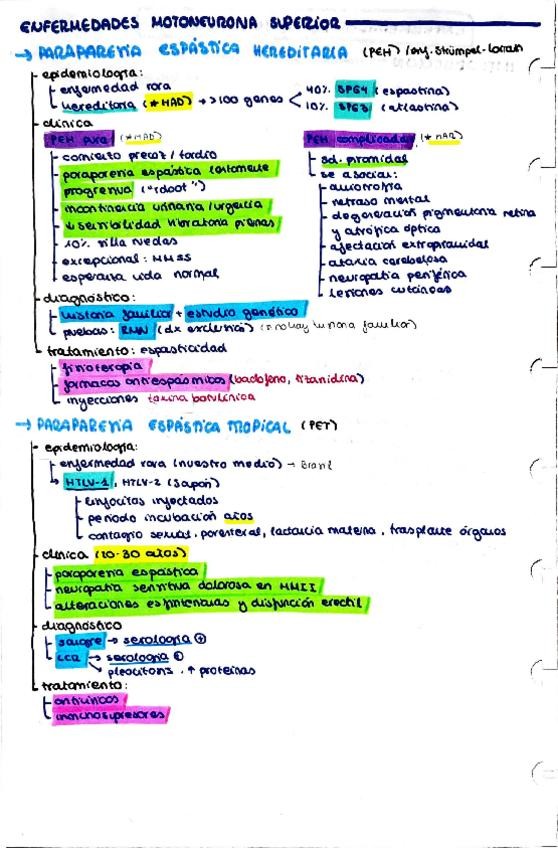 ENFERMEDADES MOTONEURONA SUPERIOR
→ PARAPARESIA ESPÁSTICA HEREDITARIA (PEH) / enf. Strümpel-Lorrain
epidemiología:
enfermedad rara
hereditaria (*HAD) → >100 genes < 40% SPG4 (espastina)
10% SPG3 (atlastina)
clínica
PEH pura (*HAD)
comienzo precoz / tardío
paraparesia espástica lentamente
progresiva ("robot")
incontinencia urinaria/urgencia
↓ sensibilidad vibratoria piernas
10% silla ruedas
excepcional: MMSS
esperanza vida normal
PEH complicada (*HAR)
sd. piramidal
se asocia:
amiotrofia
retraso mental
degeneración pigmentaria retina
y atrófica óptica
afectación extrapiramidal
ataxia cerebelosa
neuropatía periférica
lesiones cutáneas
diagnóstico:
historia familiar + estudio genético
pruebas: RMN (dx exclusión) (si no hay historia familiar)
tratamiento: espasticidad
fisioterapia
fármacos antiespásmicos (baclofeno, tizanidina)
inyecciones toxina botulínica
→ PARAPARESIA ESPÁSTICA TROPICAL (PET)
epidemiología:
enfermedad rara (nuestro medio) → Brasil
HTLV-1, HTLV-2 (Japón)
linfocitos infectados
periodo incubación años
contagio sexual, parenteral, lactancia materna, trasplante órganos
clínica (10-30 años)
paraparesia espástica
neuropatía sensitiva dolorosa en MMII
alteraciones esfinterianas y disfunción eréctil
diagnóstico
sangre → serología ⊕
LCR → serología ⊕
pleocitosis, ↑ proteínas
tratamiento:
antivíricos
inmunosupresores